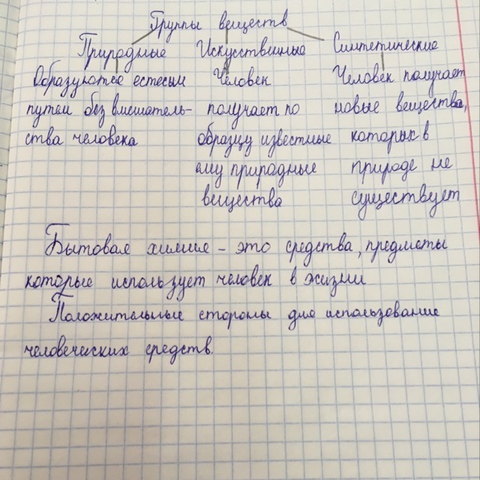 Группы веществ
Природные Искусственные Синтетические
Образуются естесым Человек Человек получает
путем без вмешатель- получает по новые вещества,
ства человека образцу известные которых в
ему природные природе не
вещества существует
Бытовая химия - это средства, предметы
которые использует человек в жизни
Положительные стороны дло использование
человеческих средств.